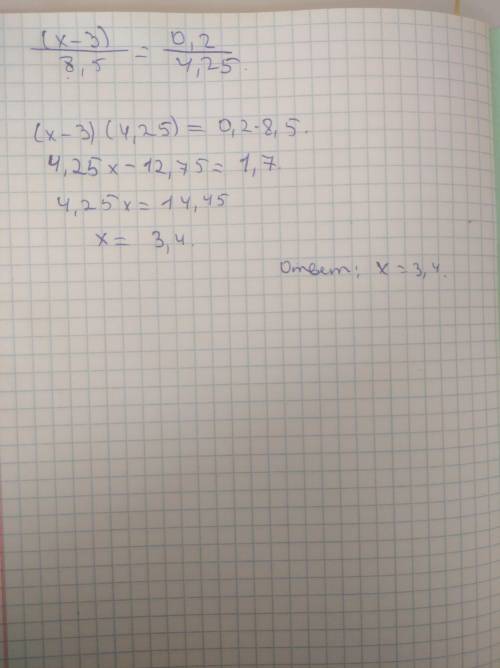 (x-3)/8,5 = 0,2/4,25.
(x-3)(4,25) = 0,2·8,5.
4,25x-12,75=1,7.
4,25x=14,45
x= 3,4.
Ответ: x=3,4.